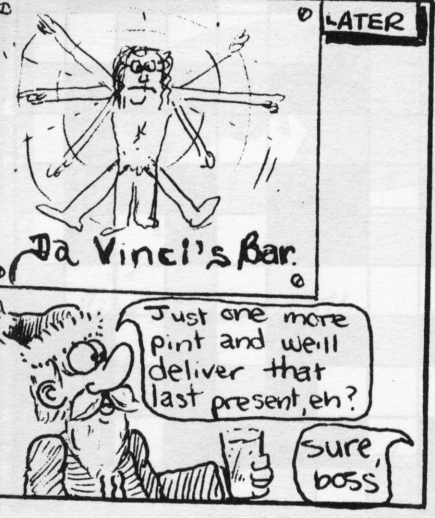 LATER
Da Vinci's Bar.
Just one more
pint and we'll
deliver that
last present, eh?
sure,
boss